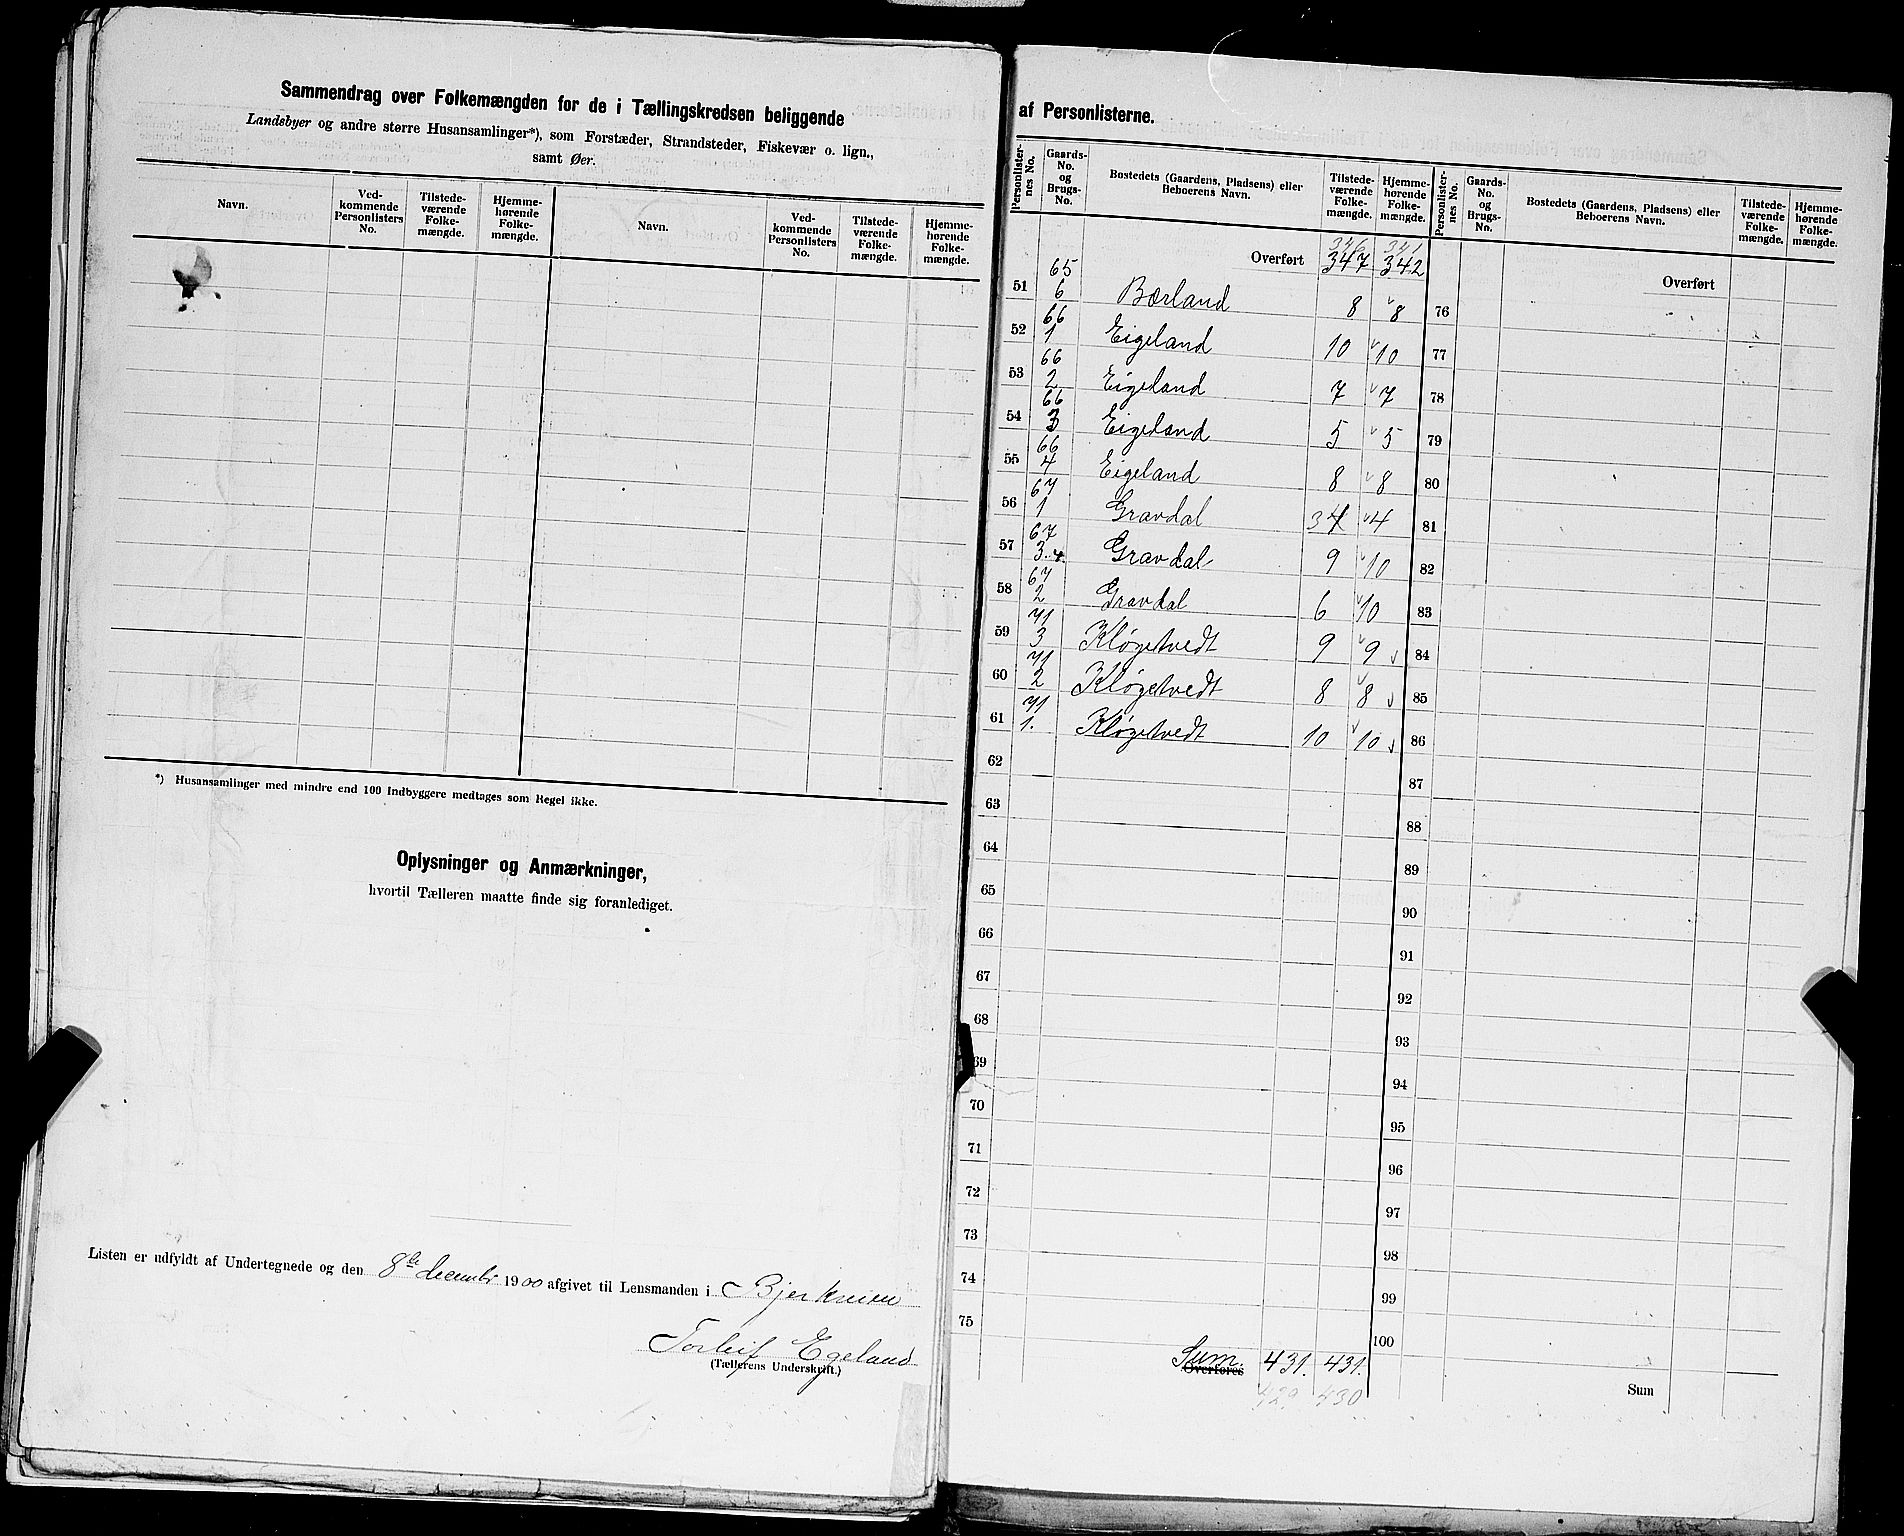 Sammendrag over Folkemængden for de i Tællingskredsen beliggende
Landsbyer og andre større Husansamlinger*), som Forstæder, Strandsteder, Fiskevær o. lign.,
samt Øer.
Navn. Ved-kommende Personlisters No. Tilstede-værende Folke-mængde. Hjemme-hørende Folke-mængde. Navn. Ved-kommende Personlisters No. Tilstede-værende Folke-mængde. Hjemme-hørende Folke-mængde.
*) Husansamlinger med mindre end 100 Indbyggere medtages som Regel ikke.
Oplysninger og Anmærkninger,
hvortil Tælleren maatte finde sig foranlediget.
Listen er udfyldt af Undertegnede og den 8de decembr 1900 afgivet til Lensmanden i Bjerkreim
Torleif Egeland
(Tællerens Underskrift.)
af Personlisterne.
Personlister-nes No. Gaards-No. og Brugs-No. Bostedets (Gaardens, Pladsens) eller Beboerens Navn. Tilstede-værende Folke-mængde. Hjemme-hørende Folke-mængde. Personlister-nes No. Gaards-No. og Brugs-No. Bostedets (Gaardens, Pladsens) eller Beboerens Navn. Tilstede-værende Folke-mængde. Hjemme-hørende Folke-mængde.
346 341
Overført 347 342 Overført
51 65 6 Bærland 8 8 76
52 66 1 Eigeland 10 10 77
53 66 2 Eigeland 7 7 78
54 66 3 Eigeland 5 5 79
55 66 4 Eigeland 8 8 80
56 67 1 Gravdal 3 4 4 81
57 67 3.4. Gravdal 9 10 82
58 67 2 Gravdal 6 10 83
59 71 3 Kløgetvedt 9 9 84
60 71 2 Kløgetvedt 8 8 85
61 71 1. Kløgetvedt 10 10 86
62 87
63 88
64 89
65 90
66 91
67 92
68 93
69 94
70 95
71 96
72 97
73 98
74 99
75 100
Sum. Overføres 431. 431. Sum
429 430